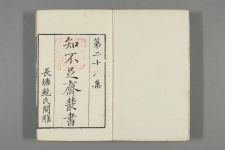 第二十八集
知不足齋叢書
長塘鮑氏開雕